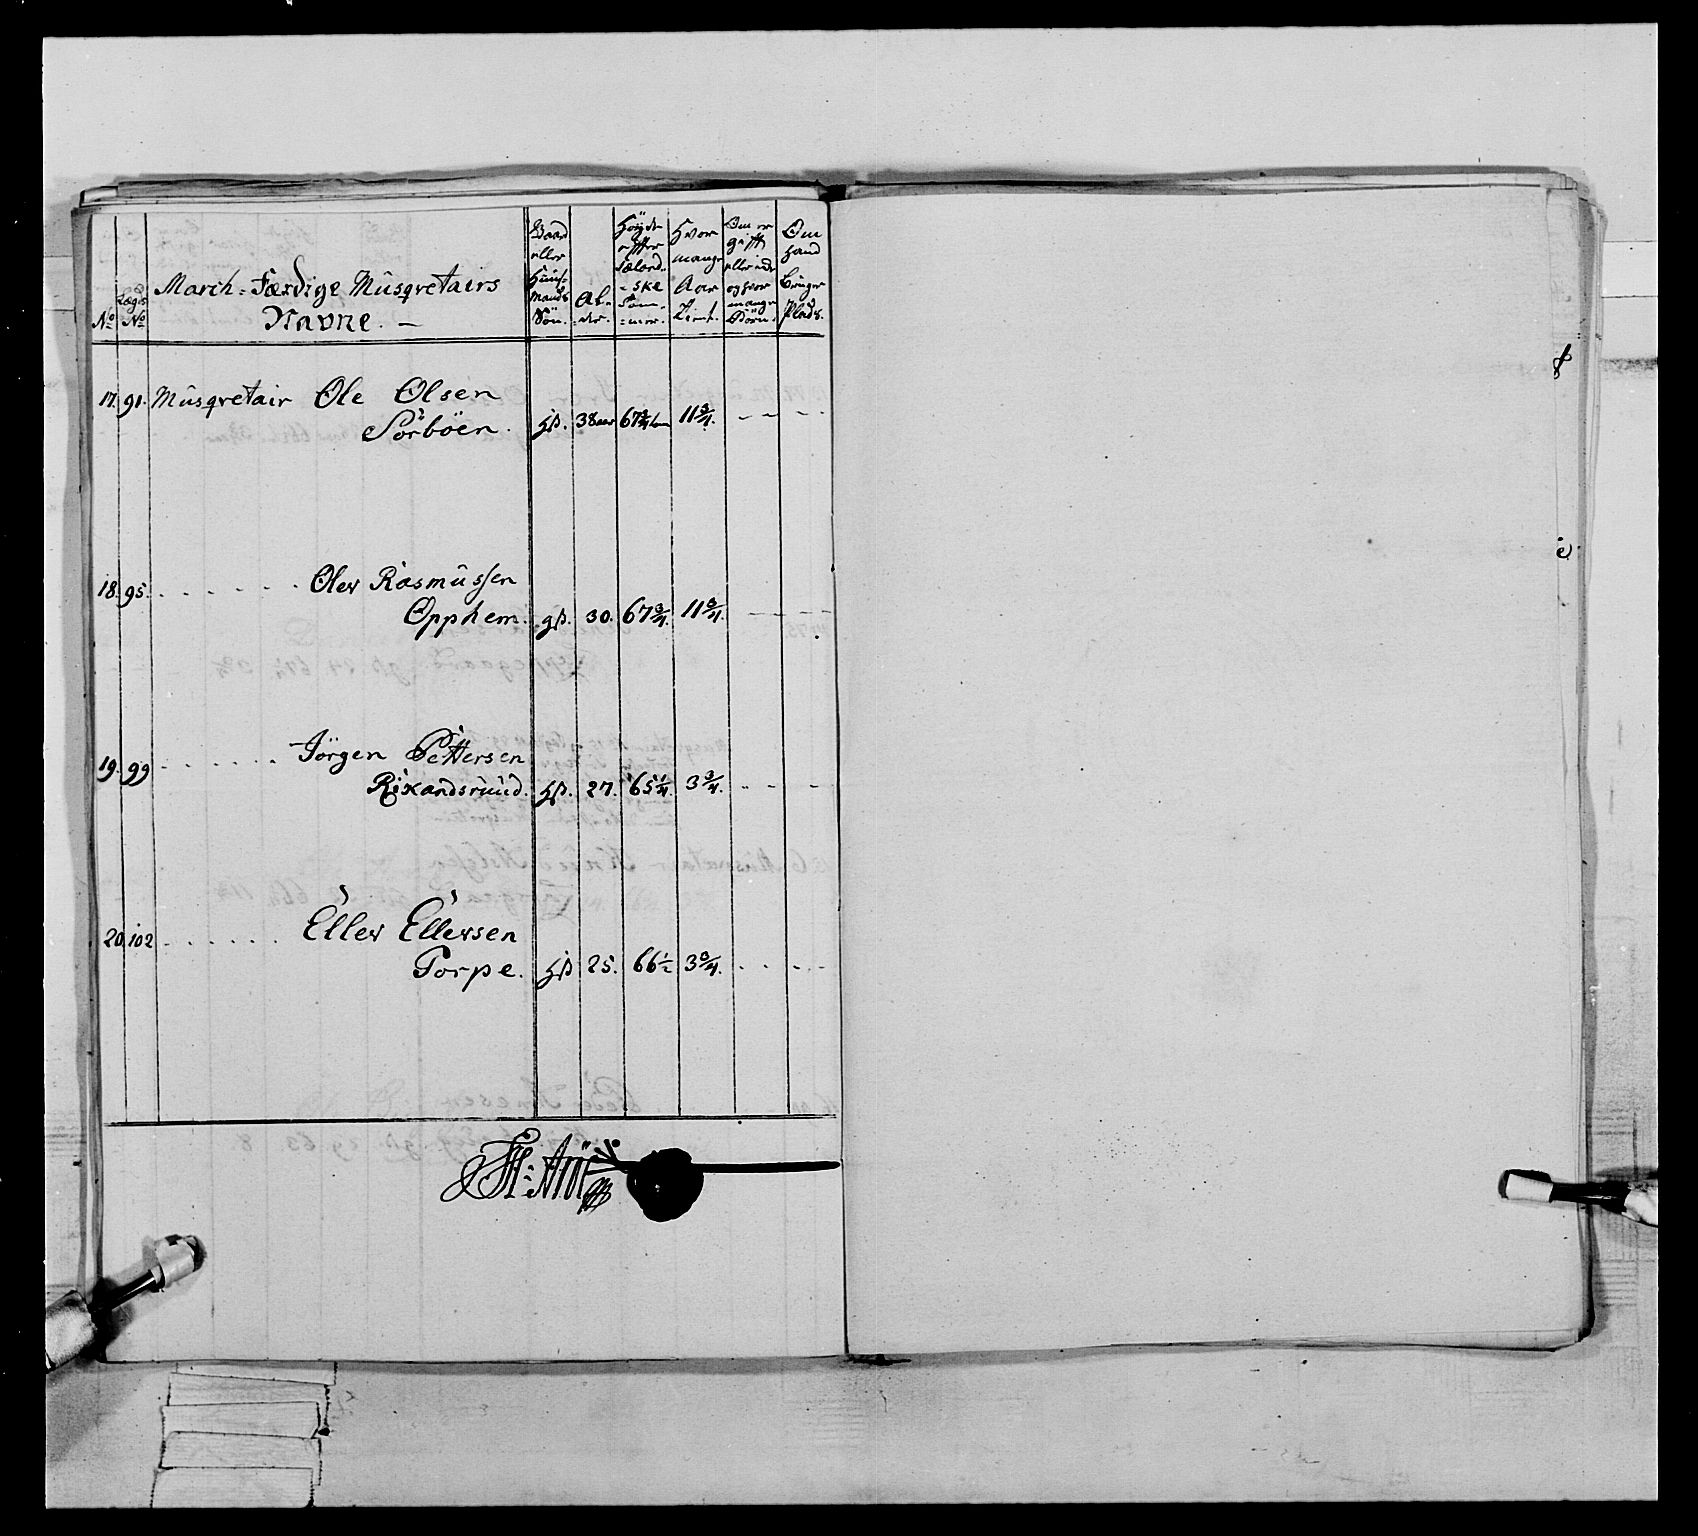 No
Lægs No
March-Færdige Musqvetairs
Navne. —
Gaard
eller
Huus-
mands
Sön.
Al-
der.
Höyde
effter
Sæland-
ske
Tom-
mer.
Hvor
mange
Aar
Tient.
Om er
gifft
eller ede
og hvor
mange
Börn.
Om
hand
bruger
Plads.
17. 91. Musqvetair Ole Olsen
Sörböen. hß. 38 aar 67 3/4 tom 11 3/4. - - - -
18. 95. . . . . . . Olev Rasmussen
Opphem. gß. 30. 67 3/4. 11 3/4. - - - -
19. 99 . . . . . . Jörgen Pettersen
Rixandsruud. hß. 27. 65 1/4. 3 3/4. - - -
20. 102 . . . . . . Ellev Ellevsen
Torpe. hß 25. 66 1/2 3 3/4. - - - -